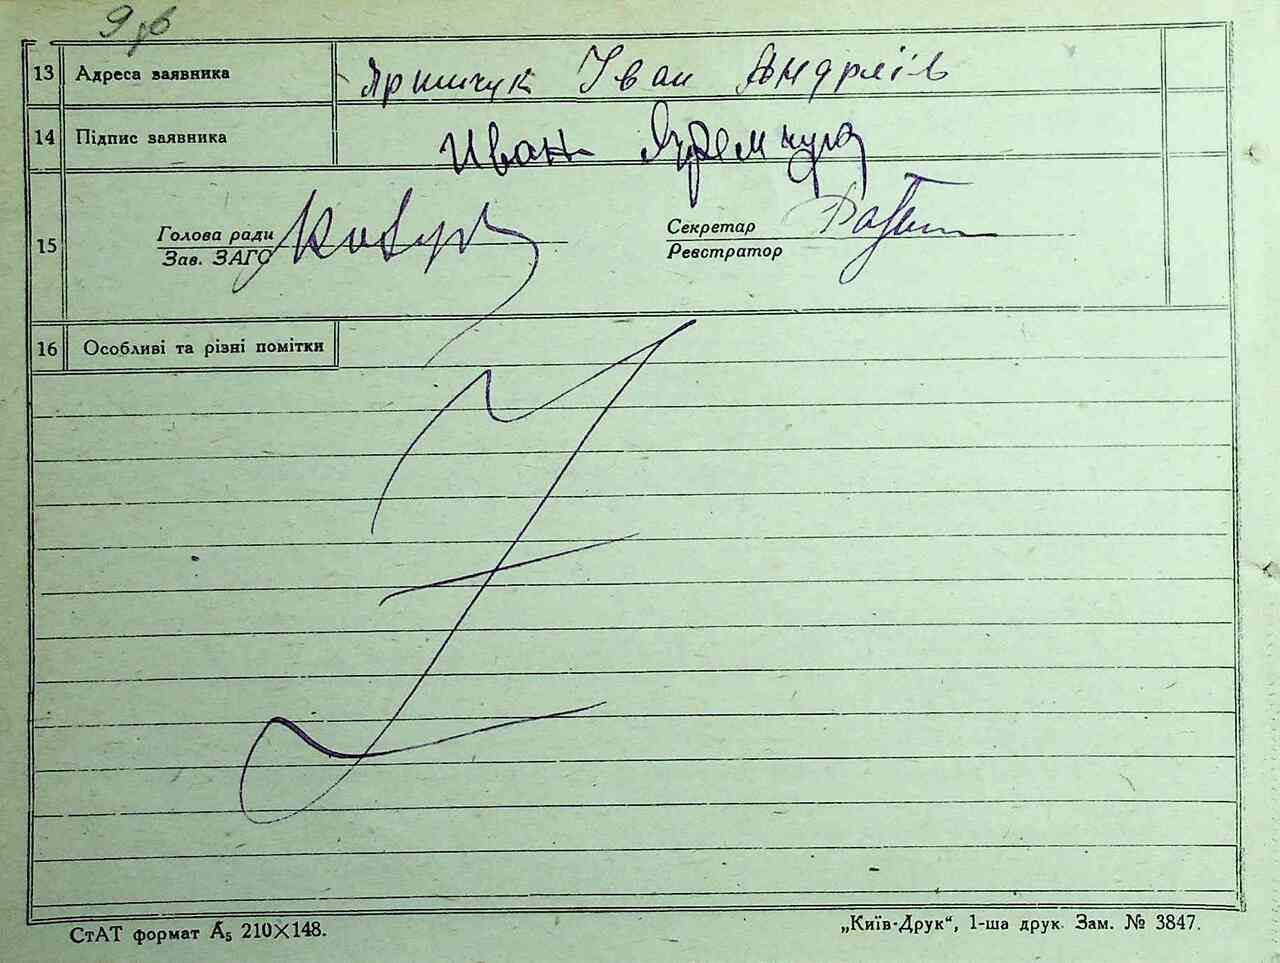 9
13 Адреса заявника Іван Андріїв
14 Підпис заявника Иван
15 Голова ради
Зав. ЗАГС
Секретар
Реєстратор
16 Особливі та різні помітки
СтАТ формат А5 210×148.
„Київ-Друк“, 1-ша друк. Зам. № 3847.